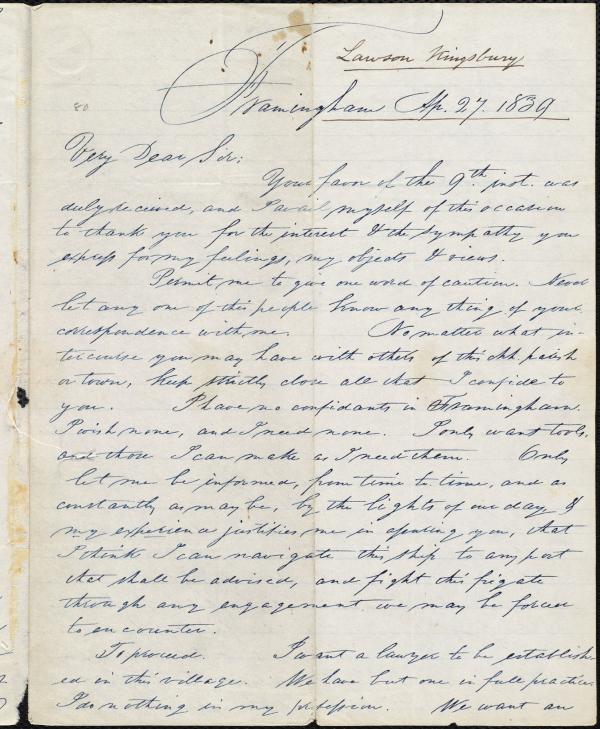 80
Lawson Kingsbury
Framingham Ap. 27. 1839
Very Dear Sir:
Your favor of the 9th. inst. was
duly received, and I avail myself of this occasion
to thank you for the interest & the sympathy you
express for my feelings, my objects & views.
Permit me to give one word of caution. Never
let any one of this people know any thing of your
correspondence with me. No matter what in-
tercourse you may have with others of this chh. parish
or town, keep strictly close all that I confide to
you. I have no confidants in Framingham.
I wish none, and I need none. I only want tools,
and those I can make as I need them. Only
let me be informed, from time to time, and as
constantly as may be, by the lights of our day &
my experience justifies me in assuring you, that
I think I can navigate this ship to any port
that shall be advised, and fight this frigate
through any engagement we may be forced
to encounter.
To proceed. I want a lawyer to be establish-
ed in this village. We have but one in full practice.
I do nothing in my profession. We want an